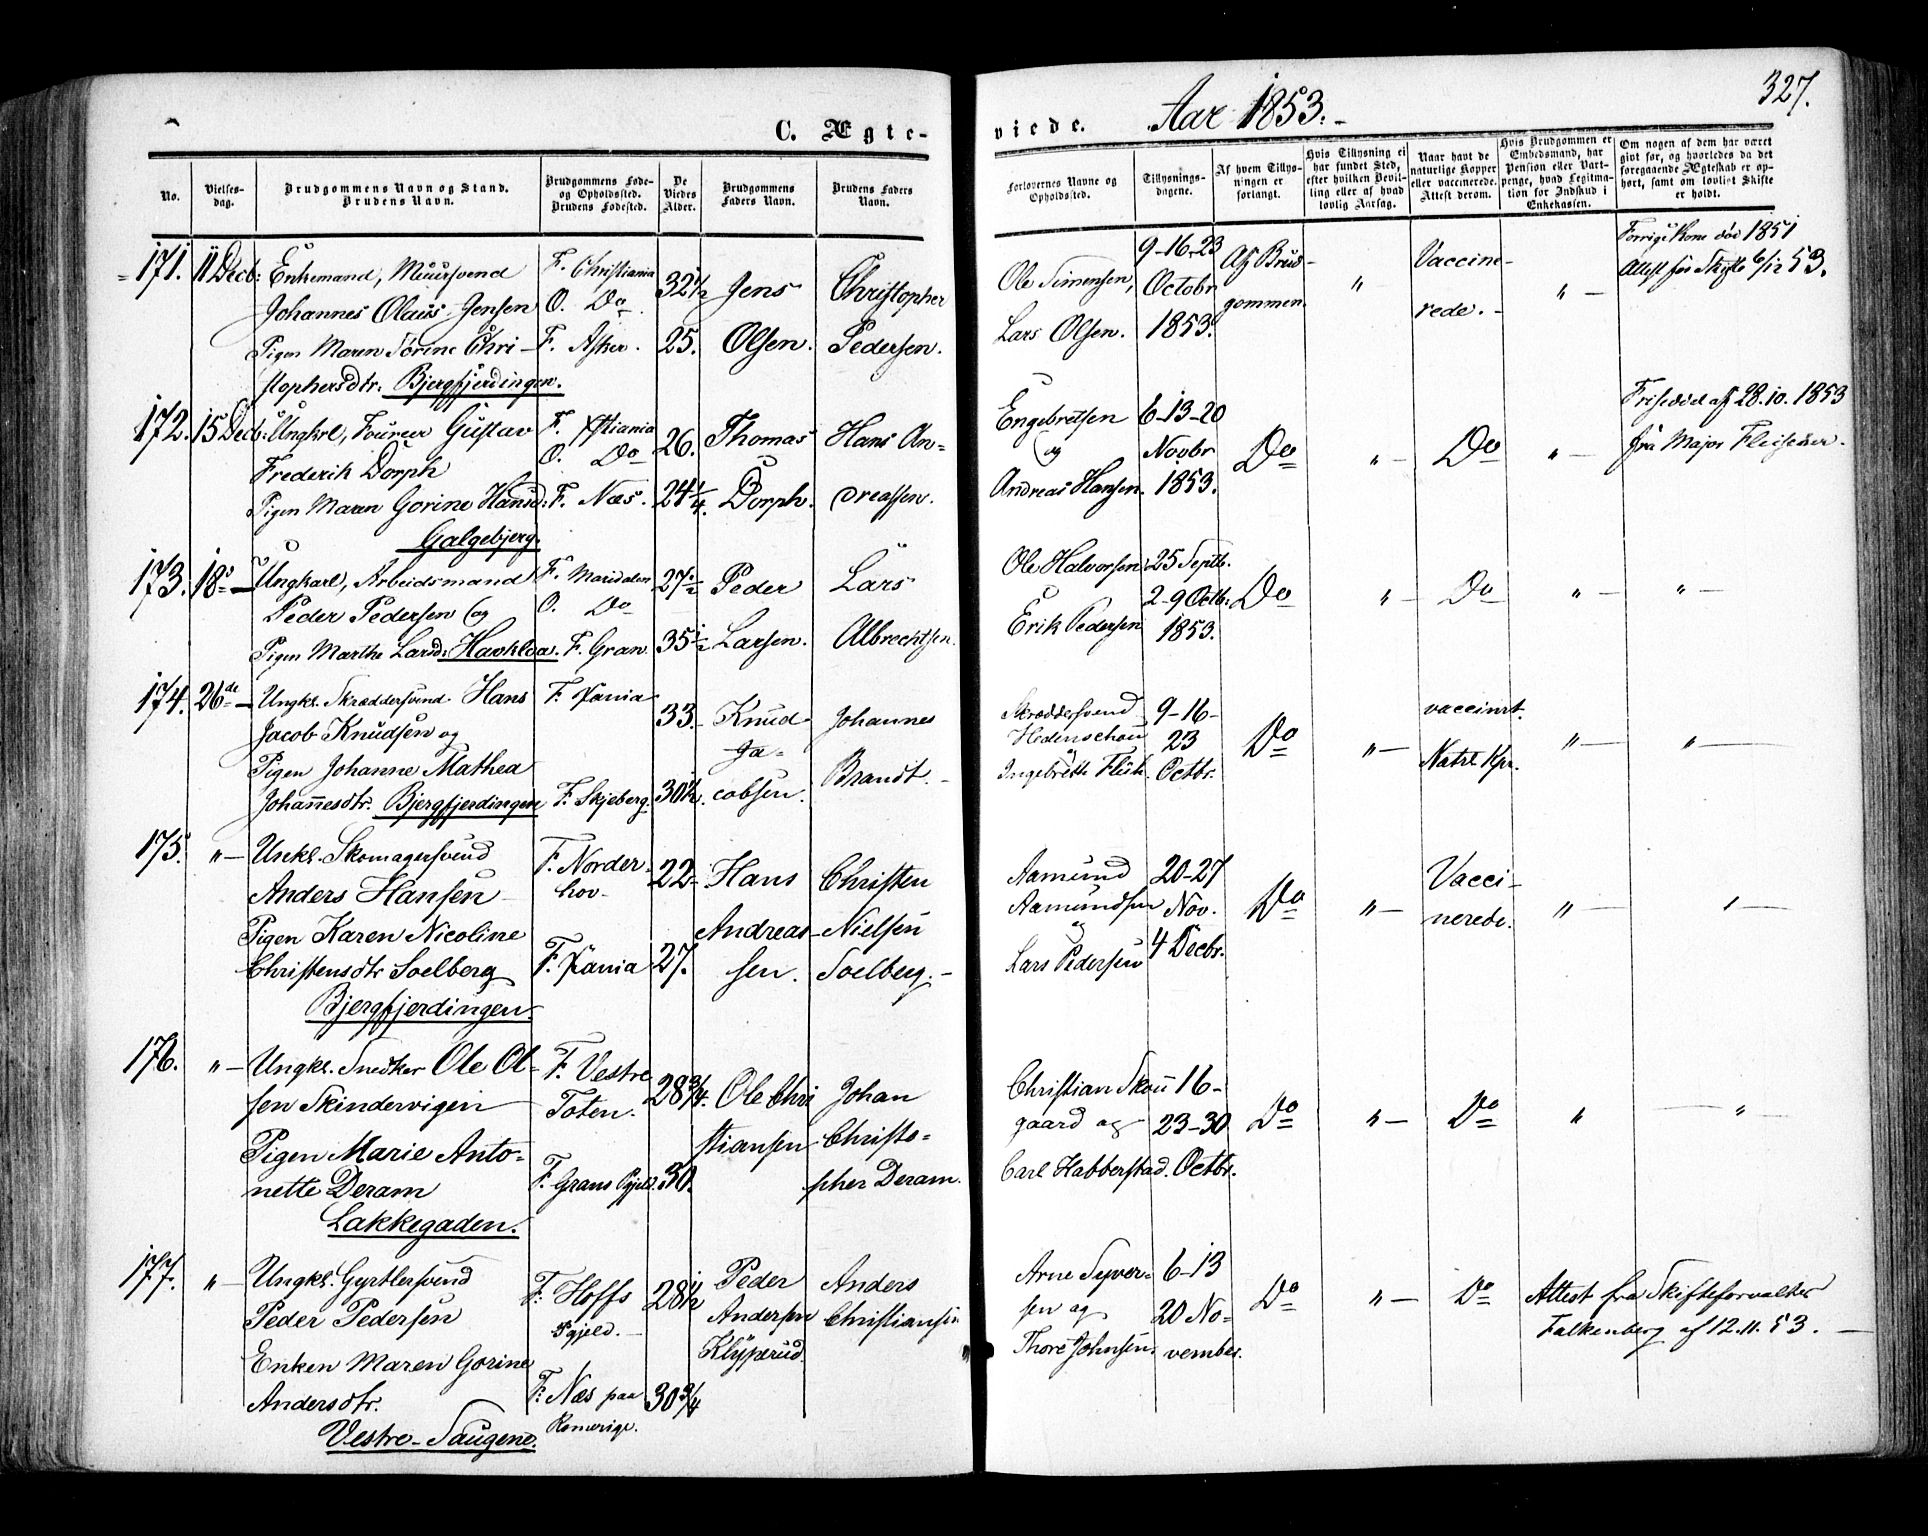 C. Ægte-
No.
Vielses-
dag.
Brudgommens Navn og Stand.
Brudens Navn.
Brudgommens Føde-
og Opholdssted.
Brudens Fødested.
De
Viedes
Alder.
Brudgommens
Faders Navn.
Brudens Faders
Navn.
171. 11 Decb: Enkemand, Muursvend F. Christiania 32½ Jens Christopher
Johannes Olaus Jensen O. Do
Pigen Maren Sørine Chri- F. Asker. 25. Olsen. Pedersen.
stophersdtr: Bjergfjerdingen.
172. 15 Decb: Ungkrl, Foureer Gustav F. Xstiania 26. Thomas Hans An-
Frederik Dorph O. Do
Pigen Maren Gorine Hansd: F. Næs. 24¼. Dorph. dreassen.
Galgebjerg.
173. 18de – Ungkarl, Arbeidsmand F. Maridalen 27½ Peder Lars
Peder Pedersen og O. Do
Pigen Marthe Larsd: Hauklda. F. Gran. 35½ Larsen. Albrechtsen.
174. 26de – Ungkl. Skræddersvend Hans F. Xania 33. Knud Johannes
Jacob Knudsen og Ja-
Pigen Johanne Mathea
Johannesdtr. Bjergfjerdingen F. Skjeberg. 30½. cobsen. Brandt. –
175. " – Ungkl. Skomagersvend F. Norder- 22 Hans Christen
Anders Hansen – hov –
Pigen Karen Nicoline Andreas- Nielsen
Christensdtr Soelberg F. Xania 27. sen. Soelberg. –
Bjergfjerdingen.
176. " – Ungkl. Snedker Ole Ol- F. Vestre 28¾. Ole Chri Johan
sen Skindervigen Toten.
Pigen Marie Anto- stiansen Christo-
nette Deram F. Grans Pgjeld. 30. pher Deram.
Lakkegaden.
177. " – Ungkl. Gyrtlersvend Peder Anders
Peder Pedersen F: Hoffs 28½ Andersen Christiansen
Pgjeld. – Klyperud.
Enken Maren Gorine
Andersdtr. F: Næs paa 30¾
Vestre-Saugene. Romerige.
viede. Aar 1853. –
327.
Forlovernes Navne og
Opholdssted.
Tillysnings-
dagene.
Af hvem Tillys-
ningen er
forlangt.
Hvis Tillysning ei
har fundet Sted,
efter hvilken Bevil-
ling eller af hvad
lovlig Aarsag.
Naar havt de
naturlige Kopper
eller vaccinerede.
Attest derom.
Hvis Brudgommen er
Embedsmand, har
Pension eller Vart-
penge, hvad Legitima-
tion for Indskud i
Enkekassen.
Om nogen af dem har været
gift før, og hvorledes da det
foregaaende Ægteskab er op-
hørt, samt om lovligt Skifte
er holdt.
9–16–23 Forrige Kone død 1851
Ole Simensen, Octobr Af Brud- " Vaccine- " – Attest for Skifte 6/12 53.
gommen. rede. –
Lars Olsen. 1853.
Engebretsen 6–13–20 Frisedel af 28.10.1853
og Novbr Do " – Do " – fra Major Fleischer –
Andreas Hansen. 1853.
Ole Halvorsen 25 Septb.
2–9 Octb: Do " – Do " – " –
Erik Pedersen 1853.
Skræddersvend 9–16– vaccinrt.
23 Do " – " – " –
Octbr. Natrl Kpr.
Aamund 20–27 Vacci-
Aamundsen Nov. Do " – nerede. " – " –
og
Lars Pedersen 4 Decbr.
Christian Skou 16–
gaard og 23–30 Do " – Do " – " –
Carl Habberstad. Octbr.
Arne Syver- 6–13
sen og 20 No- Do " – Do Attest fra Skifteforvalter
Thore Johnsen. vember. Falkenberg af 12.11.53. –